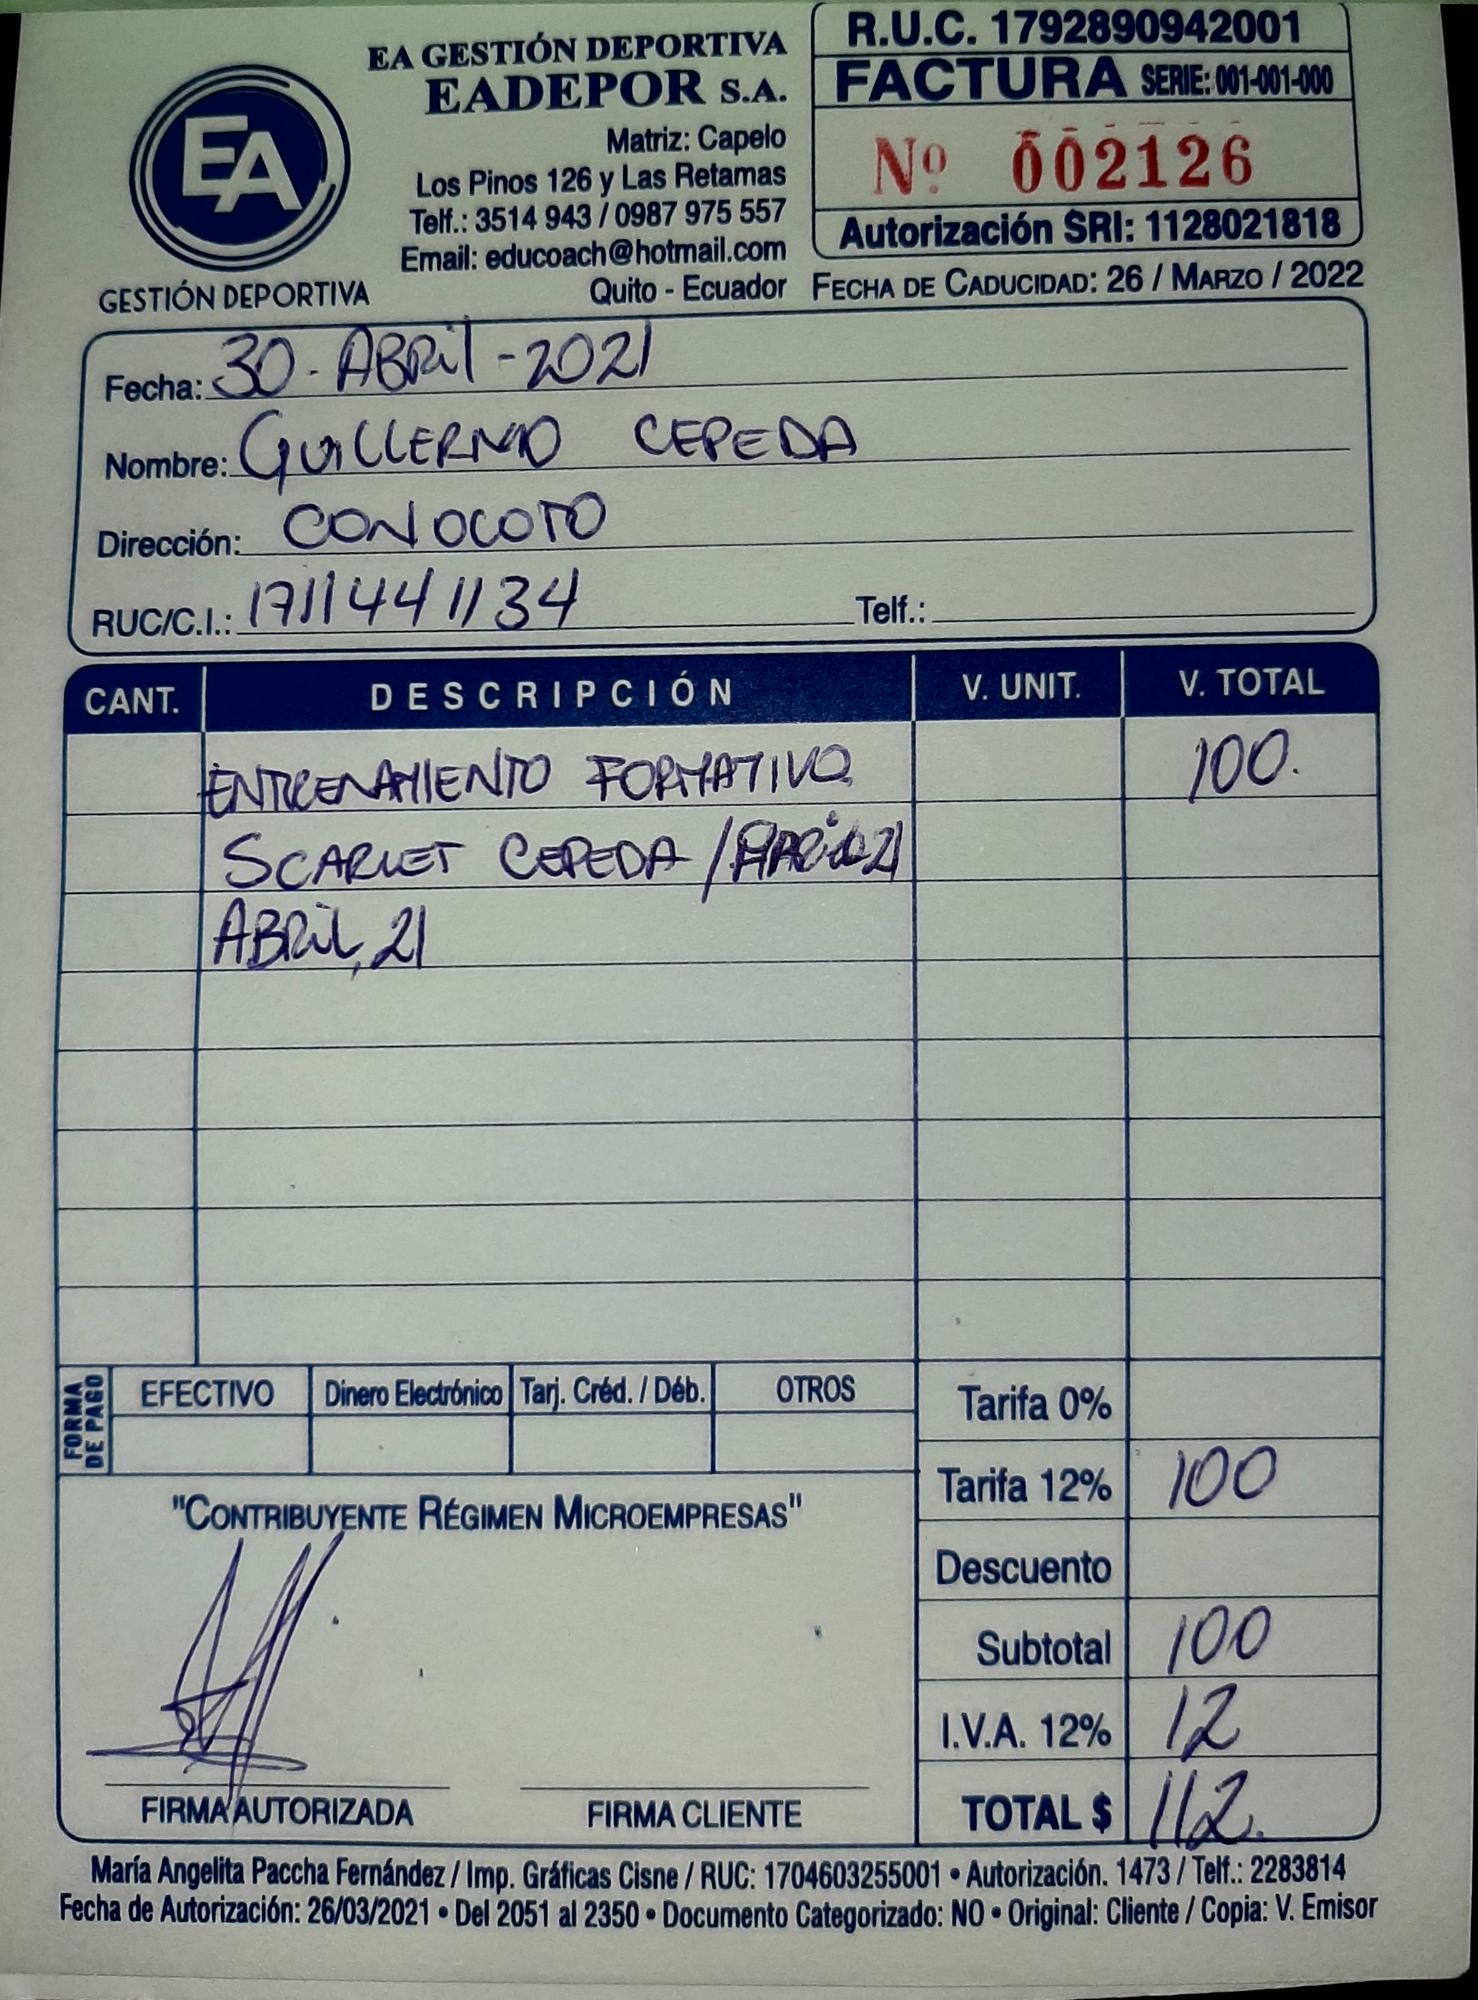 EA
GESTIÓN DEPORTIVA
EA GESTIÓN DEPORTIVA
EADEPOR S.A.
Matriz: Capelo
Los Pinos 126 y Las Retamas
Telf.: 3514 943 / 0987 975 557
Email: educoach@hotmail.com
Quito - Ecuador
R.U.C. 1792890942001
FACTURA SERIE: 001-001-000
Nº 002126
Autorización SRI: 1128021818
FECHA DE CADUCIDAD: 26 / MARZO / 2022
Fecha: 30-ABRIL-2021
Nombre: GUILLERMO CEPEDA
Dirección: CONOCOTO
RUC/C.I.: 1711441134 Telf.:
CANT. DESCRIPCIÓN V. UNIT. V. TOTAL
ENTRENAMIENTO FORMATIVO 100.
SCARLET CEPEDA /
ABRIL, 21
FORMA DE PAGO
EFECTIVO Dinero Electrónico Tarj. Créd. / Déb. OTROS
Tarifa 0%
Tarifa 12% 100
"CONTRIBUYENTE RÉGIMEN MICROEMPRESAS"
Descuento
Subtotal 100
I.V.A. 12% 12
TOTAL $ 112.
FIRMA AUTORIZADA FIRMA CLIENTE
María Angelita Paccha Fernández / Imp. Gráficas Cisne / RUC: 1704603255001 • Autorización. 1473 / Telf.: 2283814
Fecha de Autorización: 26/03/2021 • Del 2051 al 2350 • Documento Categorizado: NO • Original: Cliente / Copia: V. Emisor